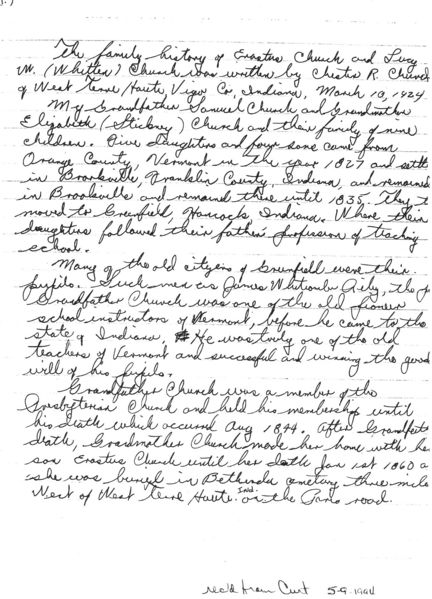 The family history of Erastus Church and Lucy
W. (Whitten) Church was written by Chester R. Church
of West Terre Haute Vigo Co, Indiana, March 10, 1924.
My Grandfather Samuel Church and Grandmother
Elizabeth (Stickney) Church and their family of nine
children. Five daughters and four sons came from
Orange County, Vermont in the year 1827 and settle
in Brookville, Franklin County, Indiana, and remained
in Brookville and remained there until 1835. They t
moved to Greenfield, Hancock, Indiana. Where their
daughters followed their father profession of teaching
school.
Many of the old citizens of Greenfield were their
pupils. Such men as James Whitcomb Riley, the po
Grandfather Church was one of the old pioneer
school instructors of Vermont, before he came to the
state of Indiana. He was truly one of the old
teachers of Vermont and successful and winning the good
will of his pupils.
Grandfather Church was a member of the
Presbyterian Church and held his membership until
his death which occured Aug 1844. After Grandfather
death, Grandmother Church made her home with he
son Erastus Church until her death Jan 1st 1860 a
she was buried in Bethesda cemetary three mile
West of West Terre Haute Ind. on the Paris road.
rec'd from Curt 5-9-1994